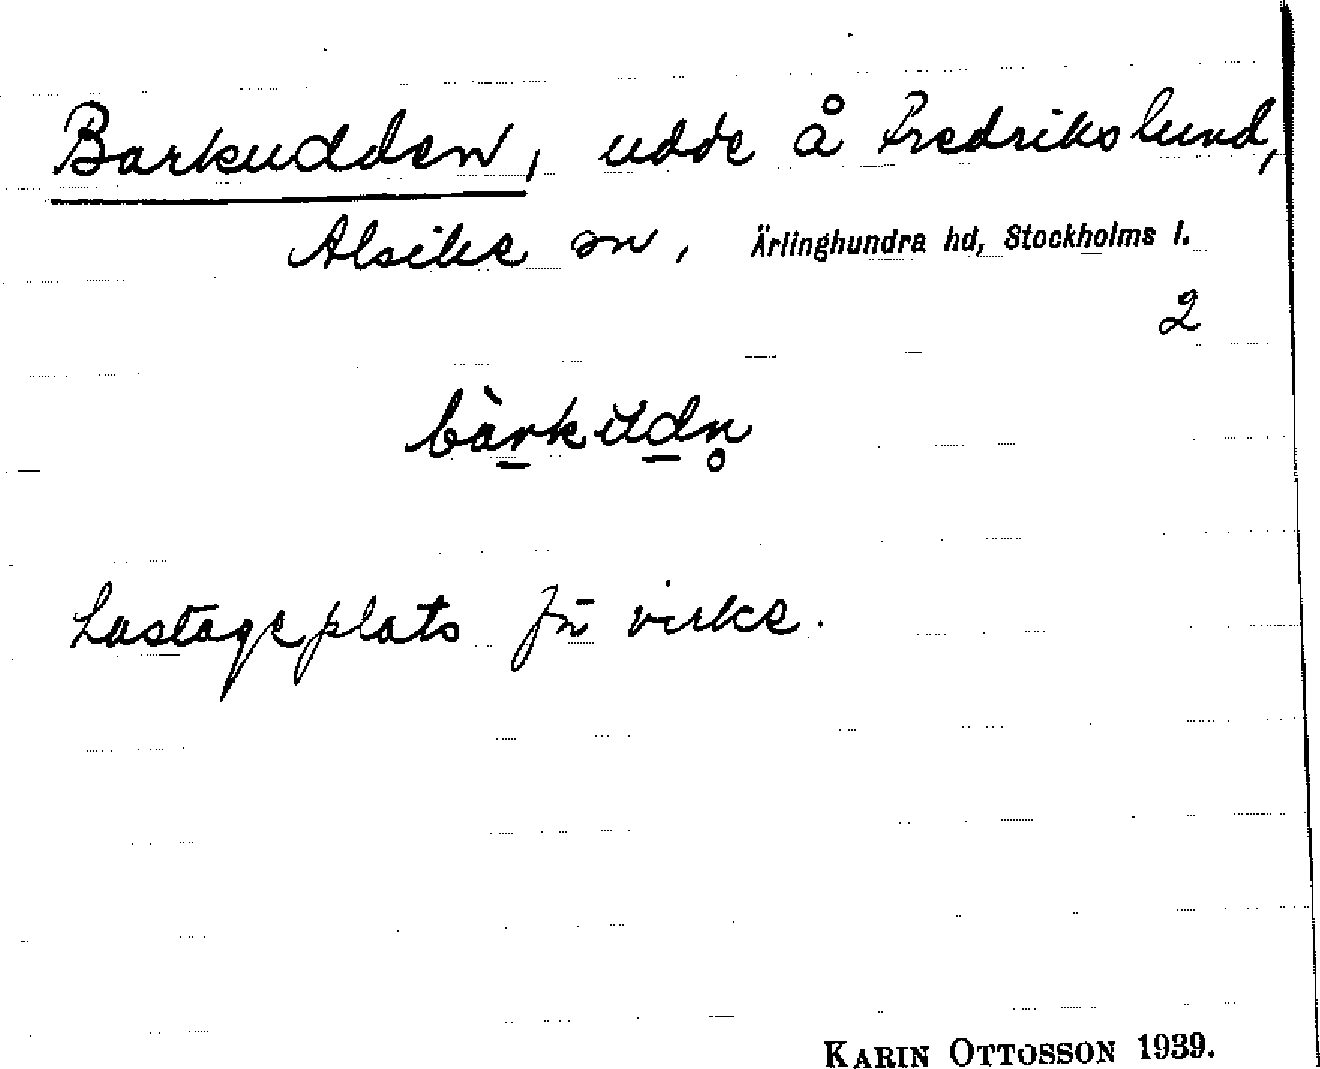 Barkudden, udde å Fredrikslund,
Alsike sn, Ärlinghundra hd, Stockholms l.
2
bàrkudn̥
Lastageplats för virke.
KARIN OTTOSSON 1939.